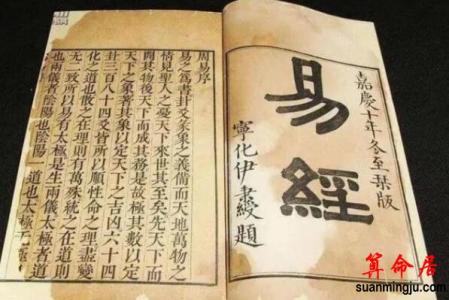 嘉慶十年冬至栞版
易經
寧化伊秉綬題
周易序
易之為書卦爻彖象之義備而天地萬物之
情見聖人之憂天下來世其至矣先天下而
開其物後天下而成其務是故極其數以定
天下之象著其象以定天下之吉凶六十四
卦三百八十四爻皆所以順性命之理盡變
化之道也散之在理則有萬殊統之在道則
无二致所以易有太極是生兩儀太極者道
也兩儀者陰陽也陰陽一道也太極无極
算命居
suanmingju.com